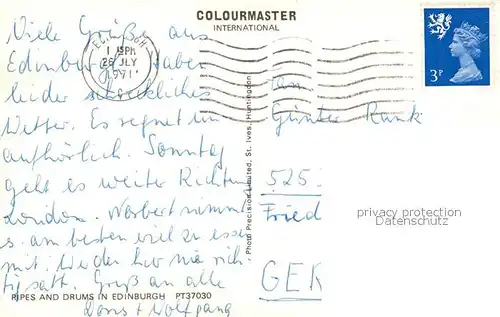 COLOURMASTER
INTERNATIONAL
Viele Grüße aus
Edinburgh. Haben
leider schreckliches
Wetter. Es regnet un
aufhörlich. Sonntag
geht es weiter Richtung
London. Norbert nimmt
s. am besten viel zu essen
mit. Weder hier nie rich
tig satt. Gruß an alle
Doris + Wolfgang
PIPES AND DRUMS IN EDINBURGH PT37030
EDINBURGH
1 15PM
26 JLY
1971
3P
Photo Precision Limited, St. Ives, Huntingdon
Günter Rank
525
Fried
GER
privacy protection
Datenschutz